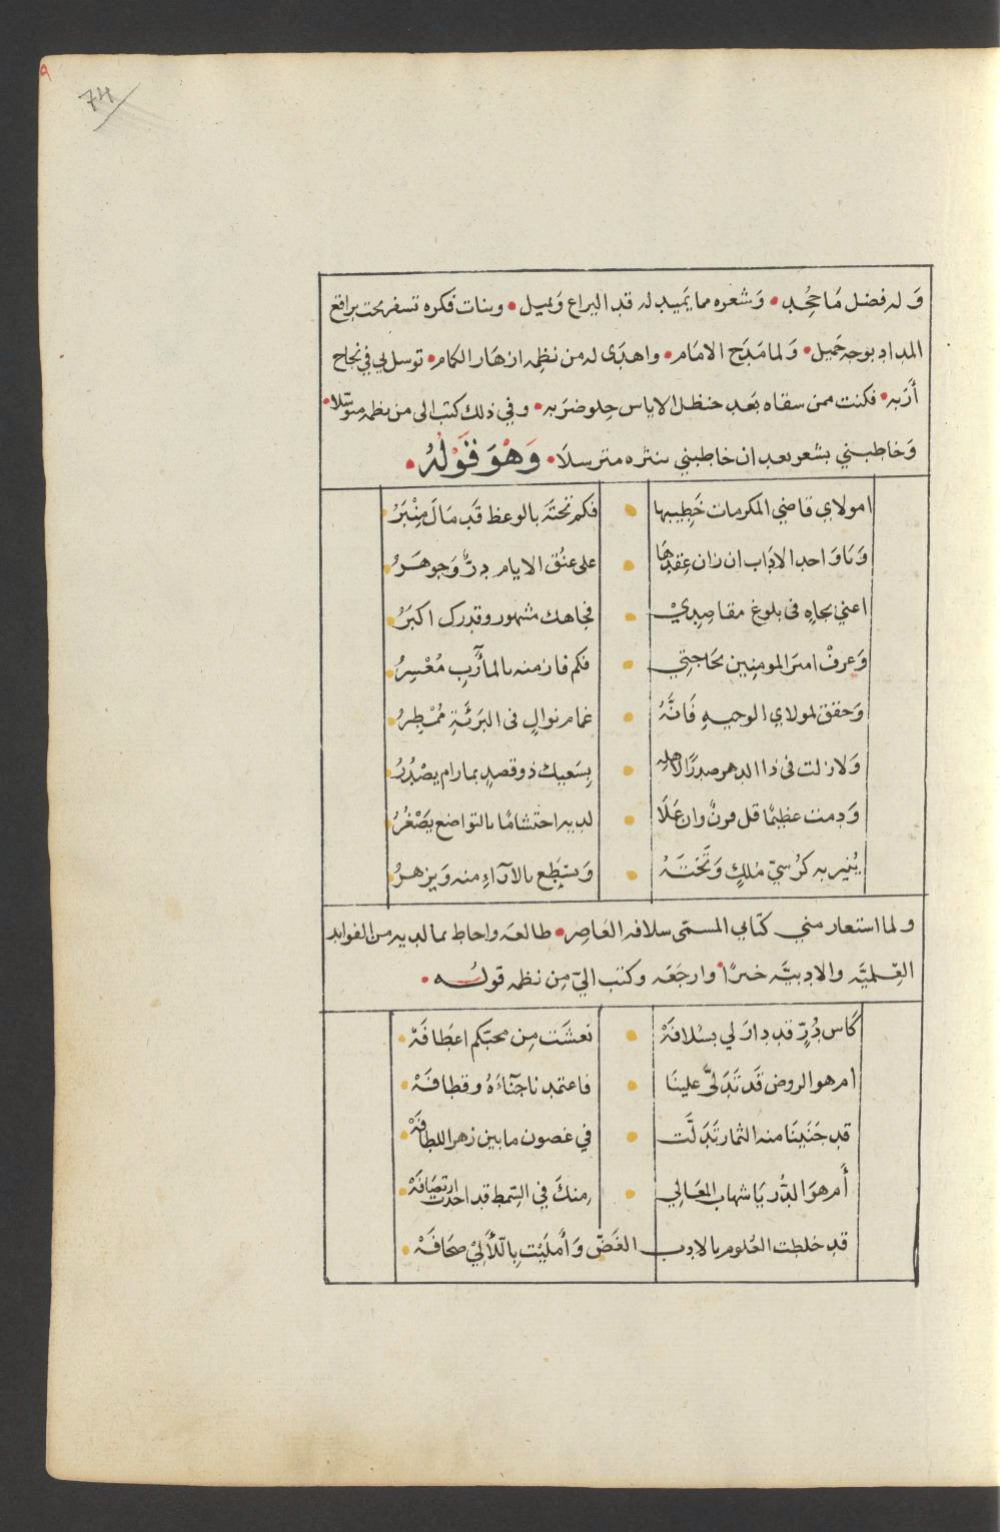 74
وَله فضل مَا جُحِد • وَشعره مما يَميد له قد اليراع وَيميل • وبنات فكره تسفر تحت براقع
المداد بوجه جَميل • وَلما مَدَح الامَام • واهدَى له من نظمه ازهَار الكمام • توسل بي في نجاح
أرَبه • فكنت ممن سقاه بَعد حنظل الاياس حِلو ضرَبه • وفي ذلك كتب الى من نظمه متوسّلا •
وَخاطبني بشعر بعد ان خاطبني بنثره مترسلَا • وَهْوَ قَوْلُهُ •
امولاي قاضي المكرمات خَطِيبها • فكم تحتَه بالوعظ قَد مَالَ مِنْبَرُ
وَيا وَاحد الادَاب ان زان عِقدهَا • على عنُق الايام درٌّ وَجوهَرُ
اعني بجاهِ فى بلوغ مقاصِدِيْ • فجاهك مشهور وقدرك اكبَرُ
وَعرفْ امير المومنِين بحَاجتِي • فكم فاز منه بالمآرِبِ مُعْسِرُ
وَحقق لمولاي الوجيهِ فَانَّهُ • غمام نوالٍ فى البَريَّةِ مُمْطِرُ
وَلا زلت فى ذا الدهر صدرًا لاهله • بِسَعيك ذو قصدٍ بما رام يصْدُرُ
وَدمت عظيمًا قل قرنٌ وان عَلَا • لديه احتشامًا بالتواضع يصَْغُرُ
يُنير به كرُسيّ مُلكٍ وَتَخْتَهُ • وَيسْطَع بالآراءِ منه وَيزهرُ
ولما استعار مني كتابي المسمّى سلافه العَاصِر • طالعَه واحاط بما لديه من الفوايد
العِلميَّه والادبيَّه خبرًا • وارجَعَه وكتب اليّ مِن نظمه قولُه •
كَاس دُرٍّ قد دارَ لي بسُلافَهْ • نعشَت مِن محبّكم اعطَافَهْ •
ام هو الروض قَد تَدَلىّ علينَا • فاعتمد ناجَنَاءَهُ وقطافَهْ •
قد جَنَينَا منه الثمار تَدَلَّت • في غصون ما بين زهر اللطافَهْ •
أَم هوَ الدُّر يَا شهاب المعَالِي • منكَ في السّمط قد احدت ارتصَافَهْ •
قد خلطت العُلوم بالادب الغَضّ وَأمليْت بالّلآلِيْ صحَافَهْ •